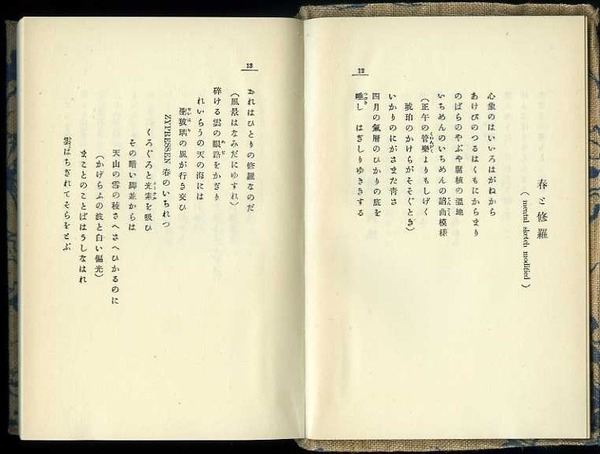 12
春と修羅
(mental sketch modified)
心象のはいいろはがねから
あけびのつるはくもにからまり
のばらのやぶや腐植の濕地
いちめんのいちめんの諂曲模様
(正午の管樂よりもしげく
琥珀のかけらがそそぐとき)
いかりのにがさまた青さ
四月の氣層のひかりの底を
唾し はぎしりゆききする
13
おれはひとりの修羅なのだ
(風景はなみだにゆすれ)
碎ける雲の眼路をかぎり
れいらうの天の海には
聖玻璃の風が行き交ひ
ZYPRESSEN 春のいちれつ
くろぐろと光素を吸ひ
その暗い脚並からは
天山の雪の稜さへひかるのに
(かげらふの波と白い偏光)
まことのことばはうしなはれ
雲はちぎれてそらをとぶ